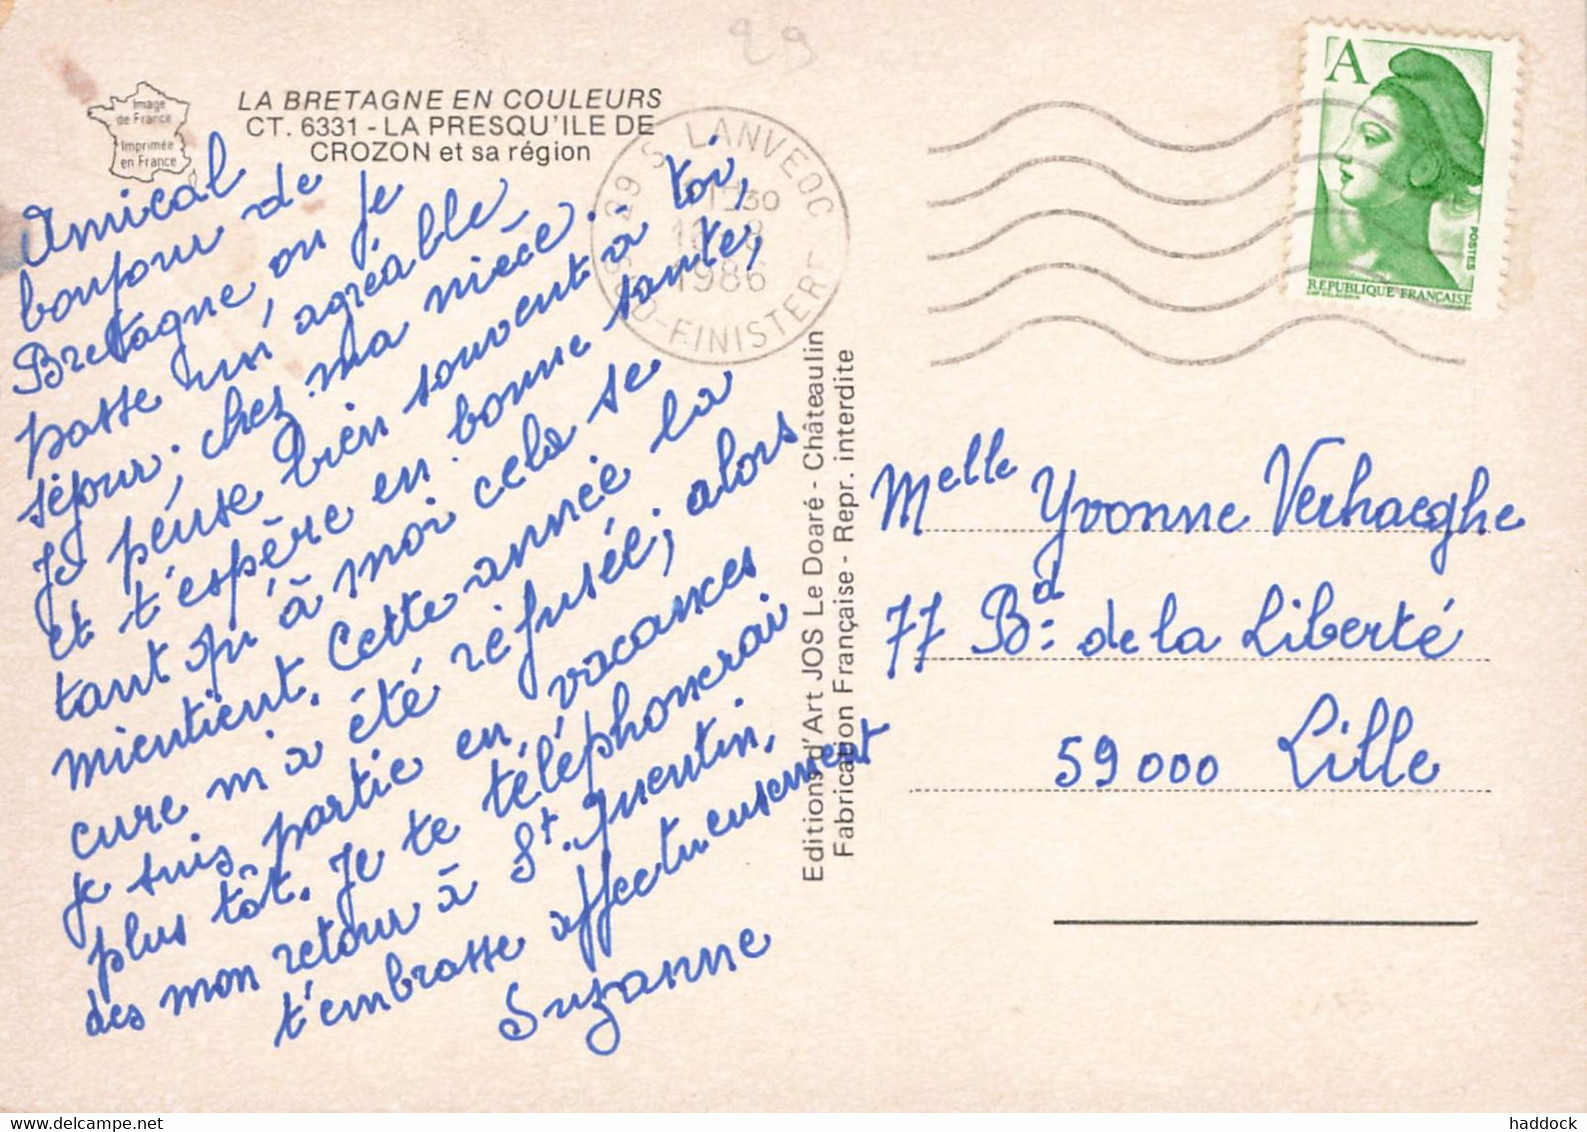 29
Image
de France
Imprimée
en France
LA BRETAGNE EN COULEURS
CT. 6331 - LA PRESQU'ILE DE
CROZON et sa région
Amical
bonjour de
Bretagne, ou je
passe un agréable
séjour; chez ma nièce.
Je pense bien souvent à toi,
et t'espère en bonne santé,
tant qu'à moi cela se
maintient. Cette année la
cure m'a été refusée; alors
je suis partie en vacances
plus tôt. Je te téléphonerai
dès mon retour à St. Quentin.
t'embrasse affectueusement
Suzanne
29 S LANVEOC
1986
SUD-FINISTERE
Editions d'Art JOS Le Doaré - Châteaulin
Fabrication Française - Repr. interdite
A
POSTES
REPUBLIQUE FRANÇAISE
Melle Yvonne Verhaeghe
77 Bd: de la Liberté
59000 Lille
haddock